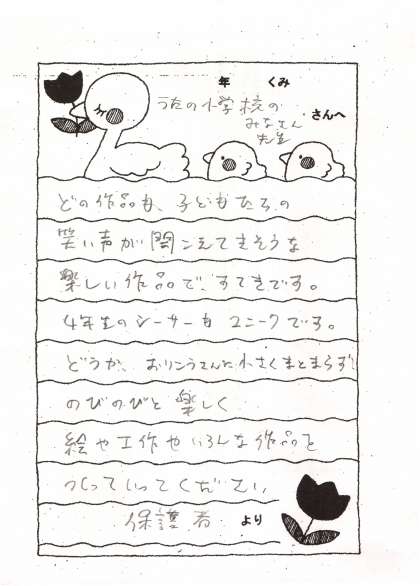 年 くみ
うたの小学校の
みなさん
先生
さんへ
どの作品も、子どもたちの
笑い声が聞こえてきそうな
楽しい作品で、すてきです。
4年生のシーサーもユニークです。
どうか、おりこうさんに小さくまとまらず
のびのびと楽しく
絵や工作やいろんな作品を
つくっていってください。
保護者 より